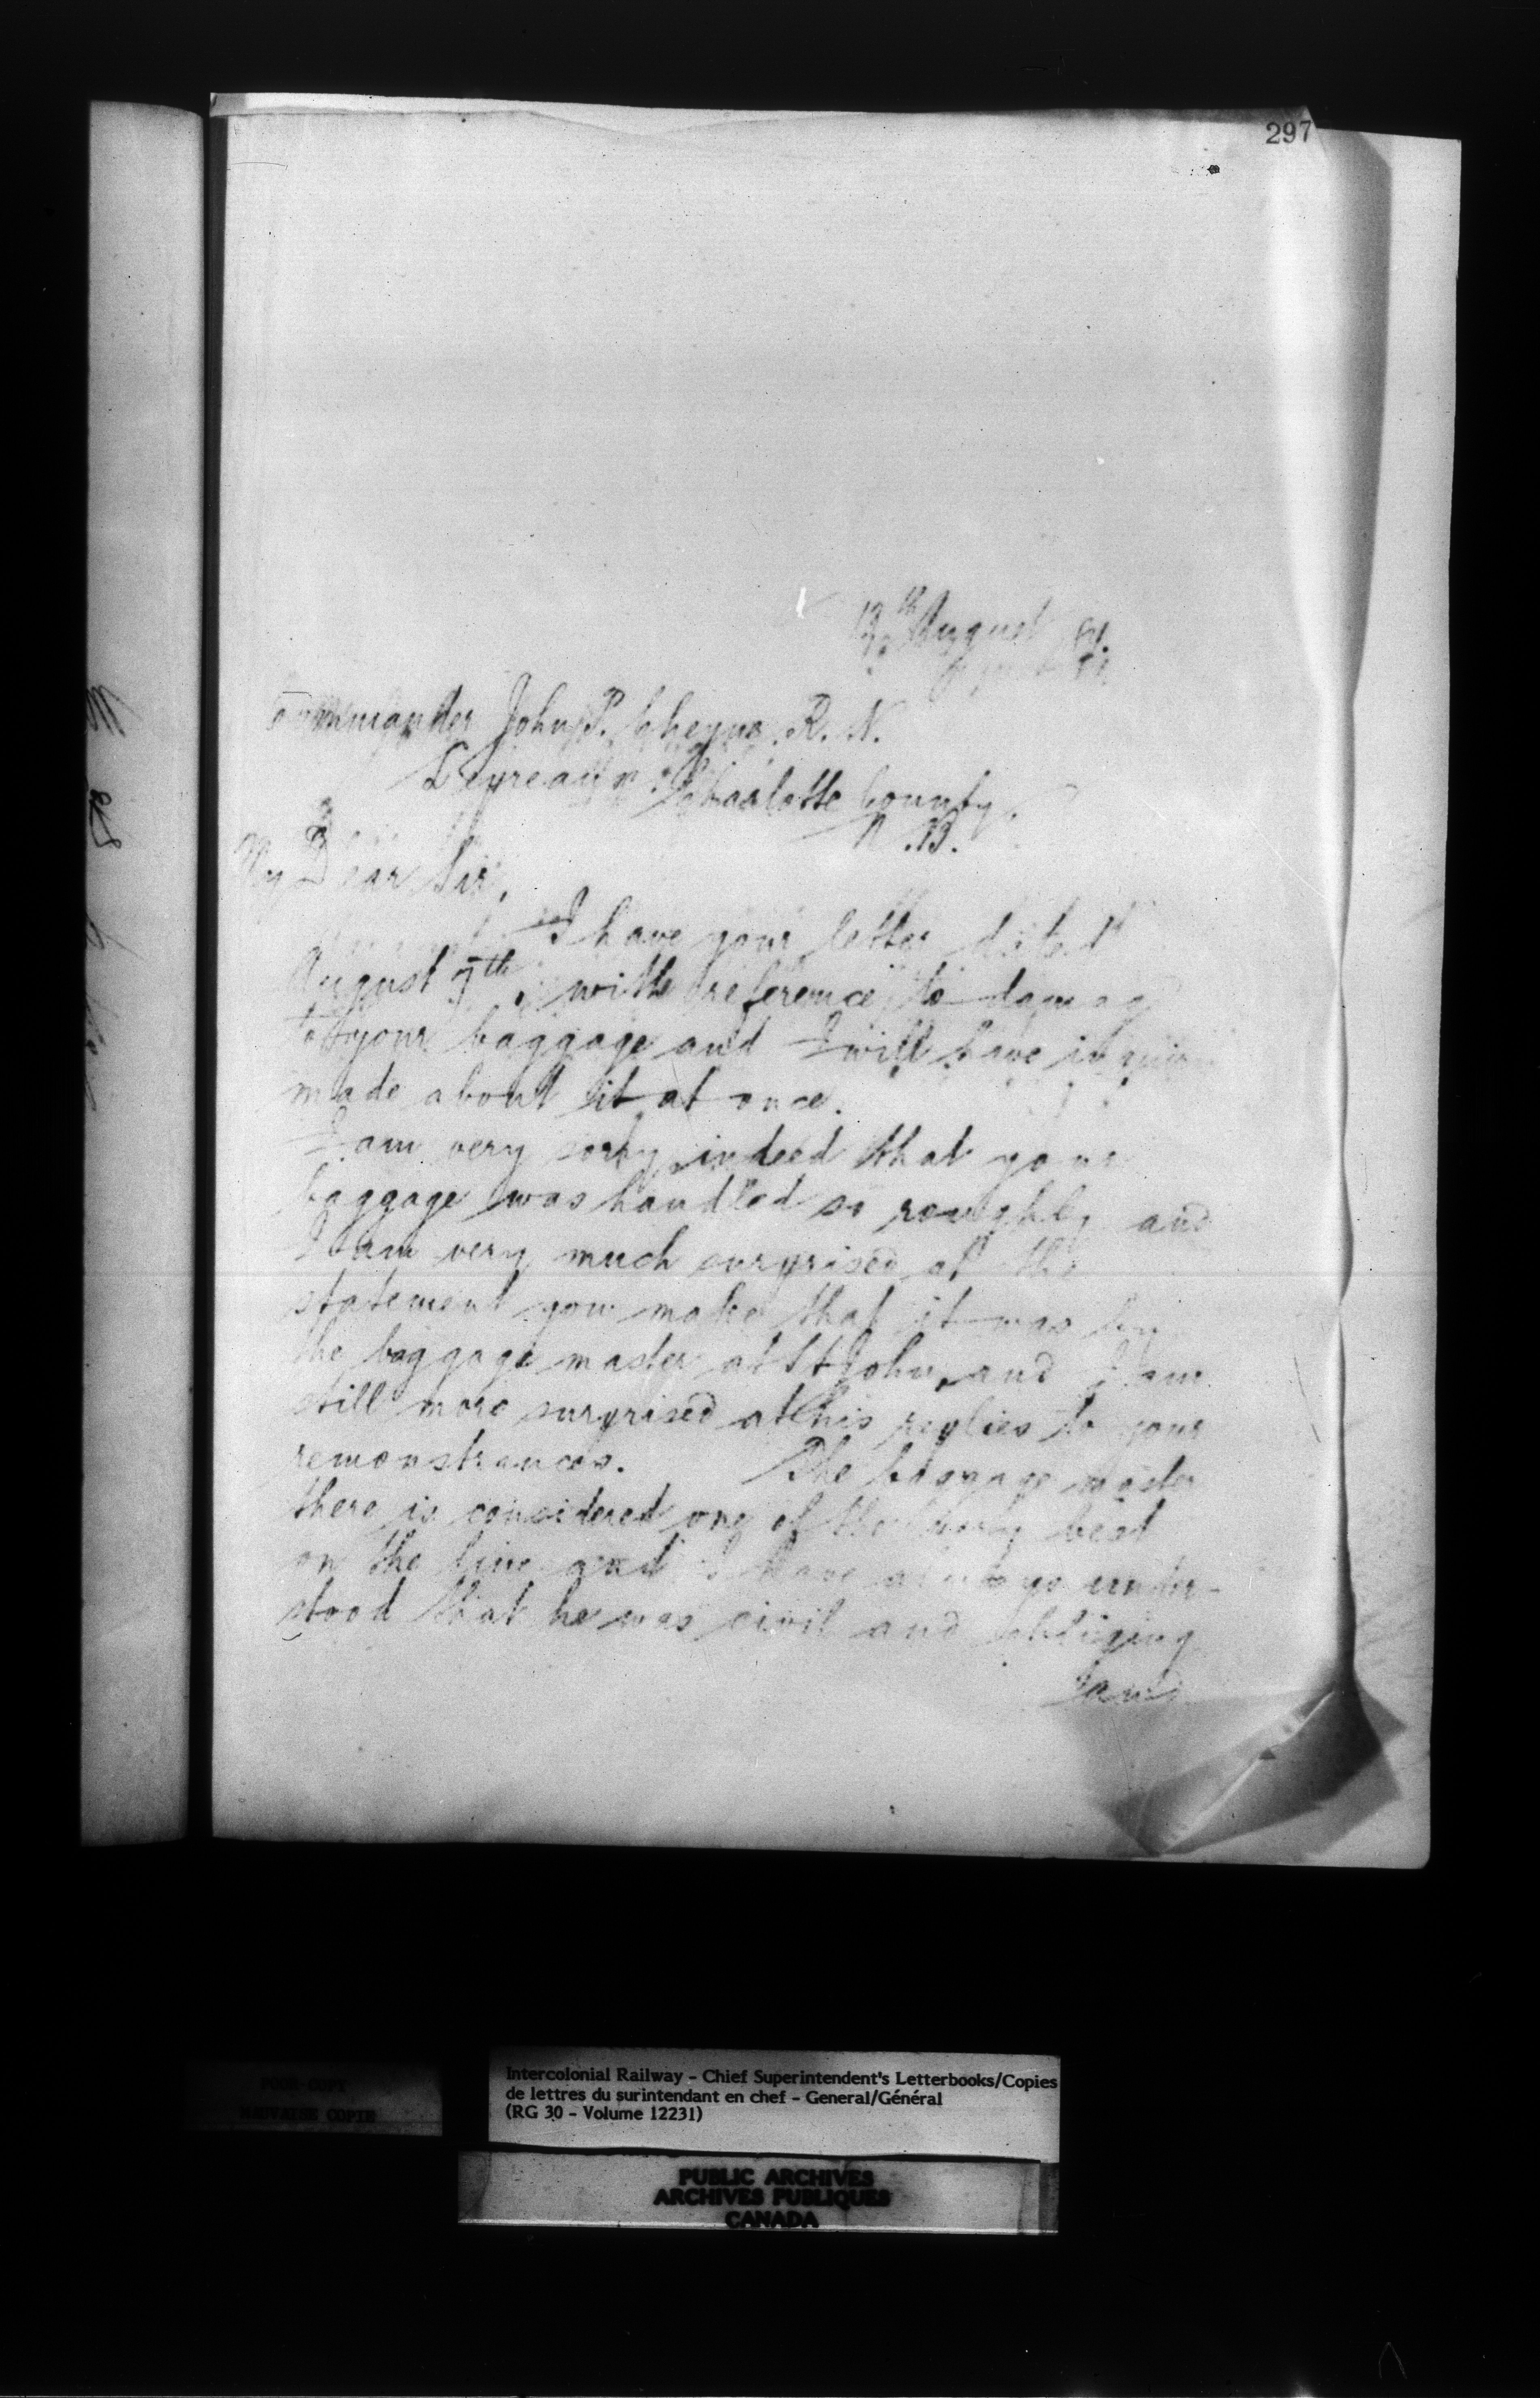 297
August
Commander John P. Cheyne, R. N.
Lepreaux
Charlotte County,
N. B.
My Dear Sir,
I have your letter dated
August 7th, with reference to damage
to your baggage and I will have inquiry
made about it at once.
I am very sorry indeed that your
baggage was handled so roughly and
I am very much surprised at the
statement you make that it was by
the baggage master at St John, and I am
still more surprised at his replies to your
remonstrances. The baggage master
there is considered one of the very best
on the line and I have always under-
stood that he was civil and obliging
and
POOR COPY
MAUVAISE COPIE
Intercolonial Railway - Chief Superintendent's Letterbooks/Copies
de lettres du surintendant en chef - General/Général
(RG 30 - Volume 12231)
PUBLIC ARCHIVES
ARCHIVES PUBLIQUES
CANADA